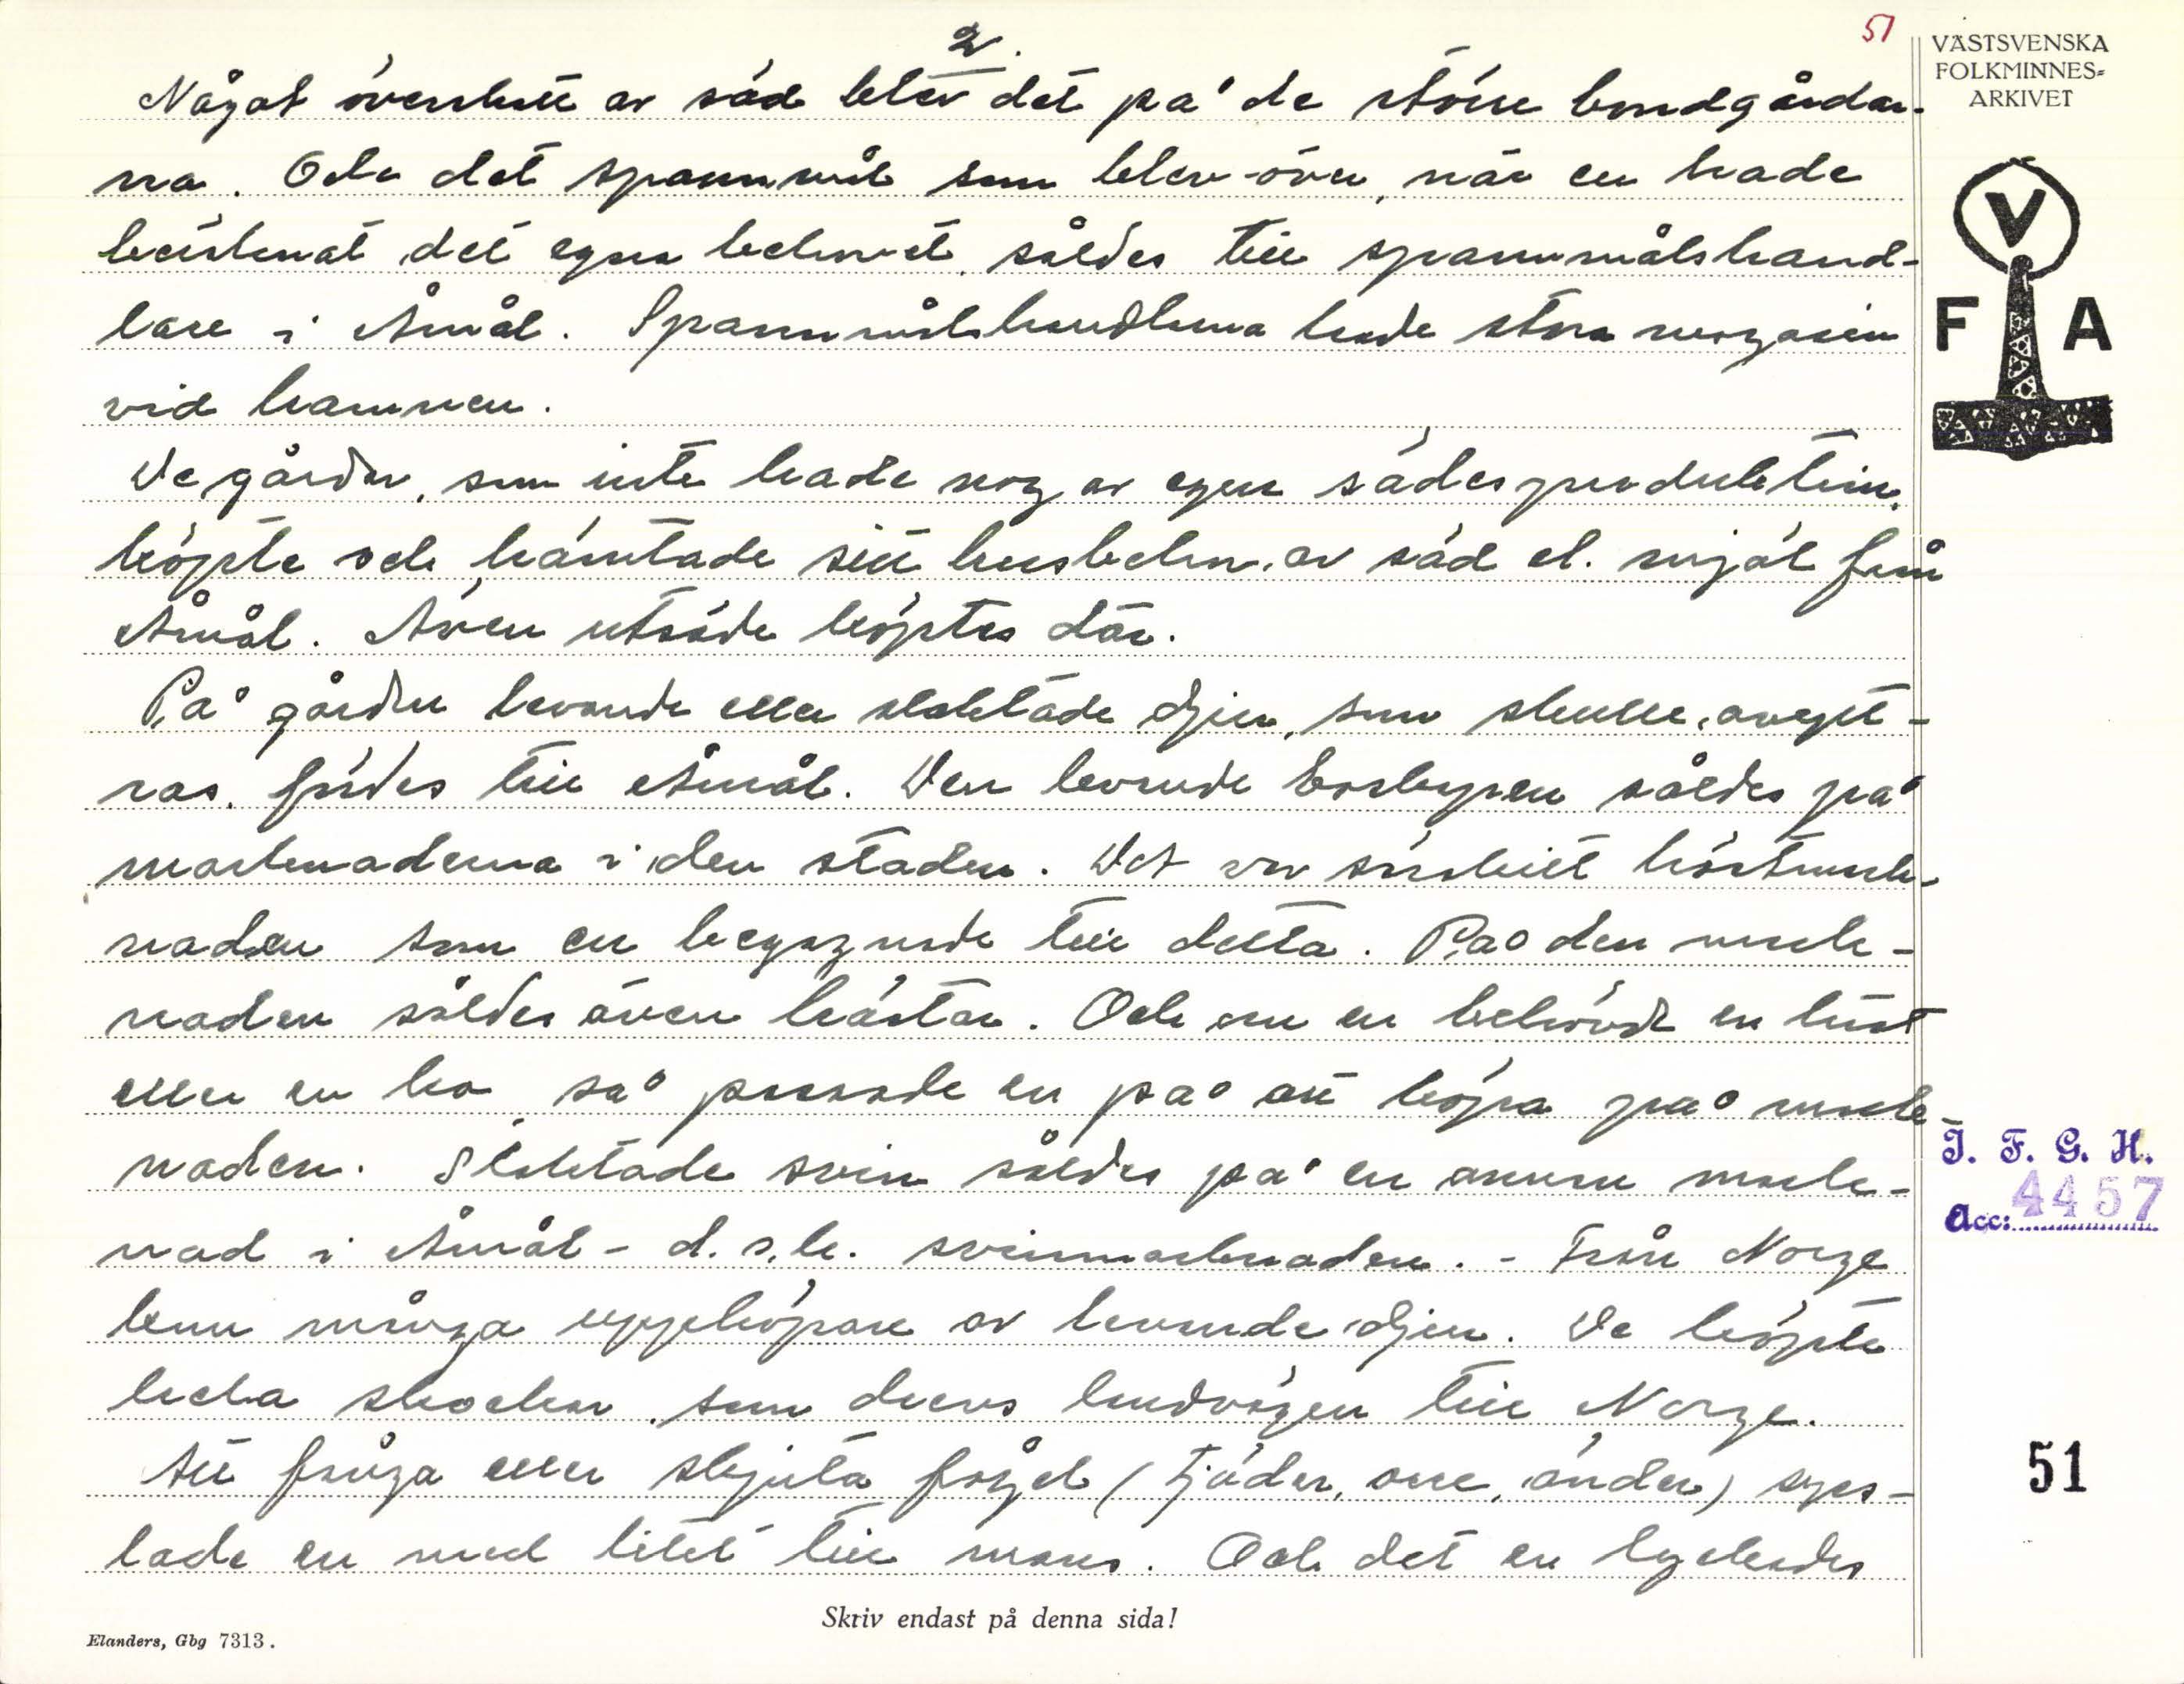 2.
51
Något överskott av säd blev det på de större bondgårdar-
na. Och det spannmål som blev över, när en hade
beräknat det egna behovet, såldes till spannmålshand-
lare i Åmål. Spannmålshandlarna hade stora magasin
vid hamnen.
De gårdar, som inte hade nog av egen sädesproduktion,
köpte och hämtade sitt husbehov av säd el. mjöl från
Åmål. Även utsäde köptes där.
På gården levande eller slaktade djur, som skulle avytt-
ras, fördes till Åmål. Den levande boskapen såldes på
marknaderna i den staden. Det var särskilt höstmark-
naden som en begagnade till detta. På den mark-
naden såldes även hästar. Och om en behövde en häst
eller en ko, så passade en på att köpa på mark-
naden. Slaktade svin såldes på en annan mark-
nad i Åmål - d.s.k. svinmarknaden. - Från Norge
kom många uppköpare av levande djur. De köpte
hela skockar, som drevs landvägen till Norge.
Att fånga eller skjuta fågel (tjäder, orre, änder) syss-
lade en med litet till mans. Och det en lyckades
VÄSTSVENSKA
FOLKMINNES=
ARKIVET
V
F A
I. F. G. H.
Acc: 4457
51
Skriv endast på denna sida!
Elanders, Gbg 7313.